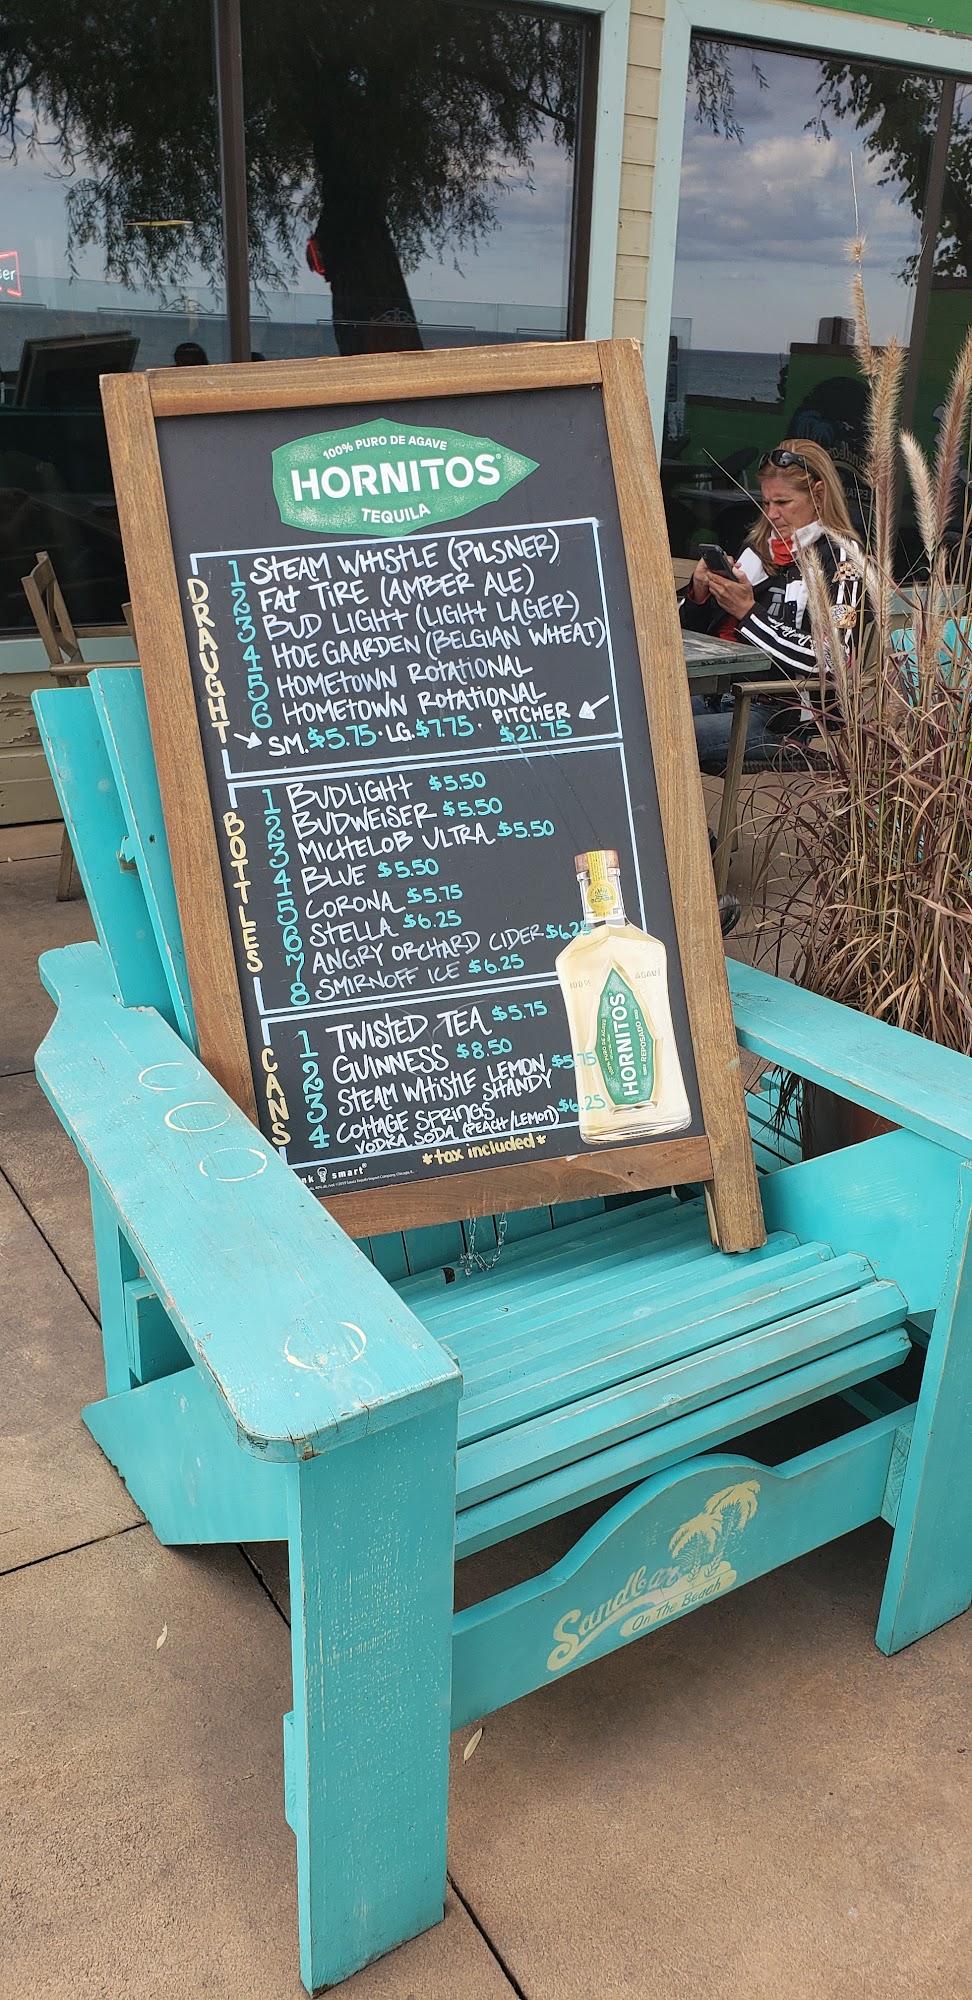 100% PURO DE AGAVE
HORNITOS®
TEQUILA
DRAUGHT
1 STEAM WHISTLE (PILSNER)
2 FAT TIRE (AMBER ALE)
3 BUD LIGHT (LIGHT LAGER)
4 HOEGAARDEN (BELGIAN WHEAT)
5 HOMETOWN ROTATIONAL
6 HOMETOWN ROTATIONAL
SM. $5.75 · LG. $7.75 · PITCHER $21.75
BOTTLES
1 BUDLIGHT $5.50
2 BUDWEISER $5.50
3 MICHELOB ULTRA $5.50
4 BLUE $5.50
5 CORONA $5.75
6 STELLA $6.25
7 ANGRY ORCHARD CIDER $6.25
8 SMIRNOFF ICE $6.25
CANS
1 TWISTED TEA $5.75
2 GUINNESS $8.50
3 STEAM WHISTLE LEMON SHANDY $5.75
4 COTTAGE SPRINGS $6.25
VODKA SODA (PEACH/LEMON)
*tax included*
smart®
100% AGAVE
HORNITOS
REPOSADO
Sandbar
On The Beach